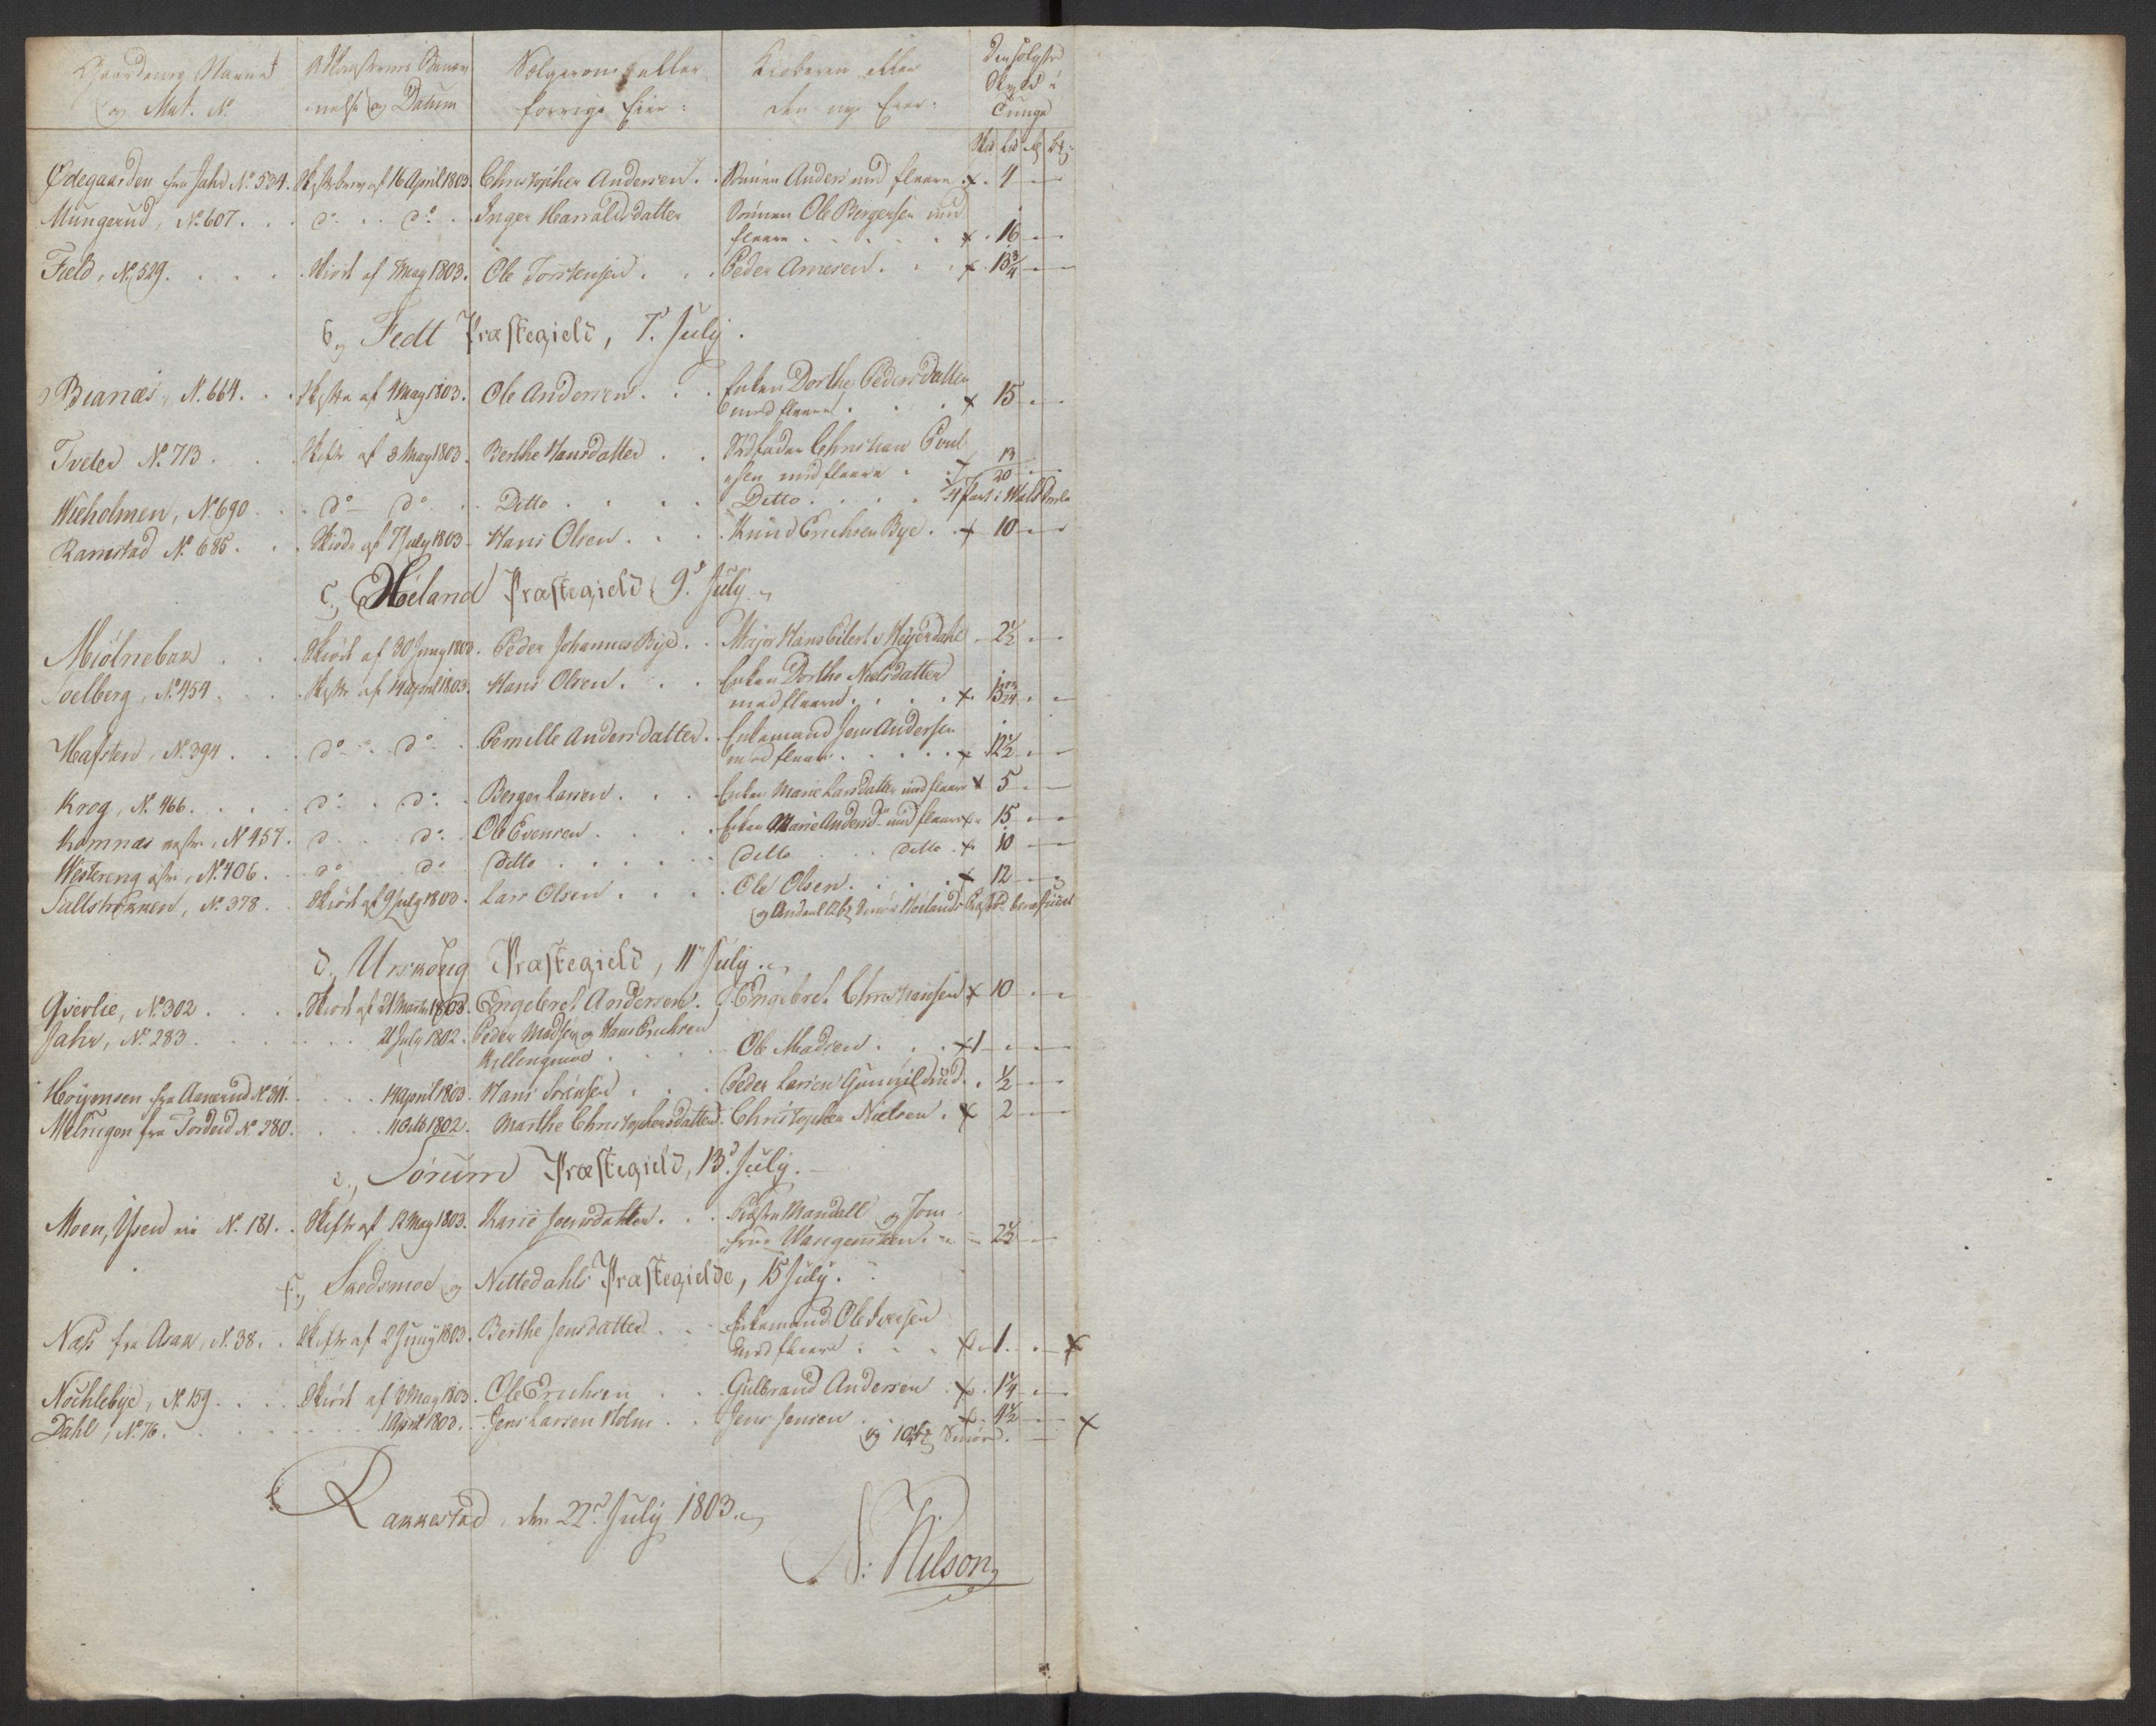 Gaardenes Navne og Mat. No. | Adkomstens Benævnelse og Datum | Sælgerens eller forrige Eier: | Kiøberen eller den nye Eier: | Den solgte Skyld i Tunge
Skd Lid
Ødegaarden fra Jahr No. 534. Skiftebrev af 16 April 1803. Christopher Andersen. Sønnen Anders med fleere x 4
Mungerud, No. 607. do. do. Inger Harraldsdatter Sønnen Ole Bergersen med
fleere x 16
Field, No. 529. Skiøde af May 1803. Ole Torstensen. Peder Arnesen. x 13 3/4
b, Fedt Præstegield, 7d July.
Bianæs, N. 664. Skifte af 4 May 1803. Ole Andersen. Enken Dorthe Pedersdatter
med fleere x 15
Tveter No. 713. Skifte af 3 May 1803. Berthe Hansdatter Christian Poul
sen med fleere 13/20
Wieholmen, No. 690. do do Ditto Ditto 1/4 Part i
Ramstad No. 685. Skiøde af 7 July 1803 Hans Olsen. Knud Erichsen Bye. x 10
c., Høland Præstegield 9d July
Miølnebak Skiøde af 30 Juny 1803. Peder Johannes Bye. Major Hans Eilert v. Heyerdahl 2 1/2
Soelberg, No. 454. Skifte af 14 April 1803. Hans Olsen. Enken Dorthe Nielsdatter
med fleere x
Hafsten, No. 394. do. do. Pernille Andersdatter. Enkemand Jens Andersen
med fleere x 12 1/2
Krog, No. 466. do. do. Berger Larsen. Enken Marie Larsdatter med fleere x 5
Komnæs vestre, No. 457. do. do. Ole Evensen. Enken Marie Andersd. med fleere x 15
Westereng østre, No. 406. do do Ditto Ditto Ditto x 10
Tultstokken, No. 378. Skiøde af 9 July 1803. Lars Olsen. Ole Olsen. x 12
d., Urskoug Præstegield, 11d July.
Qverlie, No. 302. Skiøde af 21 Martz 1803. Engebret Andersen. Engebret Christiansen x 10
Jahr, No. 283. 21 July 1802. Peder Madsen og Hans Erichsen
Killingmoe Ole Madsen x 1
Høiemsen fra Aanerud No. 311. 14 April 1803. Hans Sørensen Peder Larsen Gunnildrud. 1/2
fra Tordeid No. 280. 11 Octb 1802. Marthe Christophersdatter. Christopher Nielsen. x 2
e., Sørum Præstegield, 13d July.
Moen, Ysen No. 181. Skifte af 12 May 1803. Karie Joensdatter. Mandall og Jom
frue Wangensteen. 2 1/2
f., Skedsmoe og Nittedahls Præstegielde, 15 July.
Næss fra Asak, No. 38. Skifte af 2 Juny 1803. Berthe Jensdatter Enkemand Ole Iversen
med fleere x 1. x
Nochlebye, No. 159. Skiøde af 3 May 1803. Ole Erichsen Gulbrand Andersen x 1 1/4
Dahl, No. 76. 1 April 1803. Jens Larsen Holm Jens Jensen 4 1/2
og 10 Smør. x
Rakkestad, den 22d July 1803.
N: Nilson